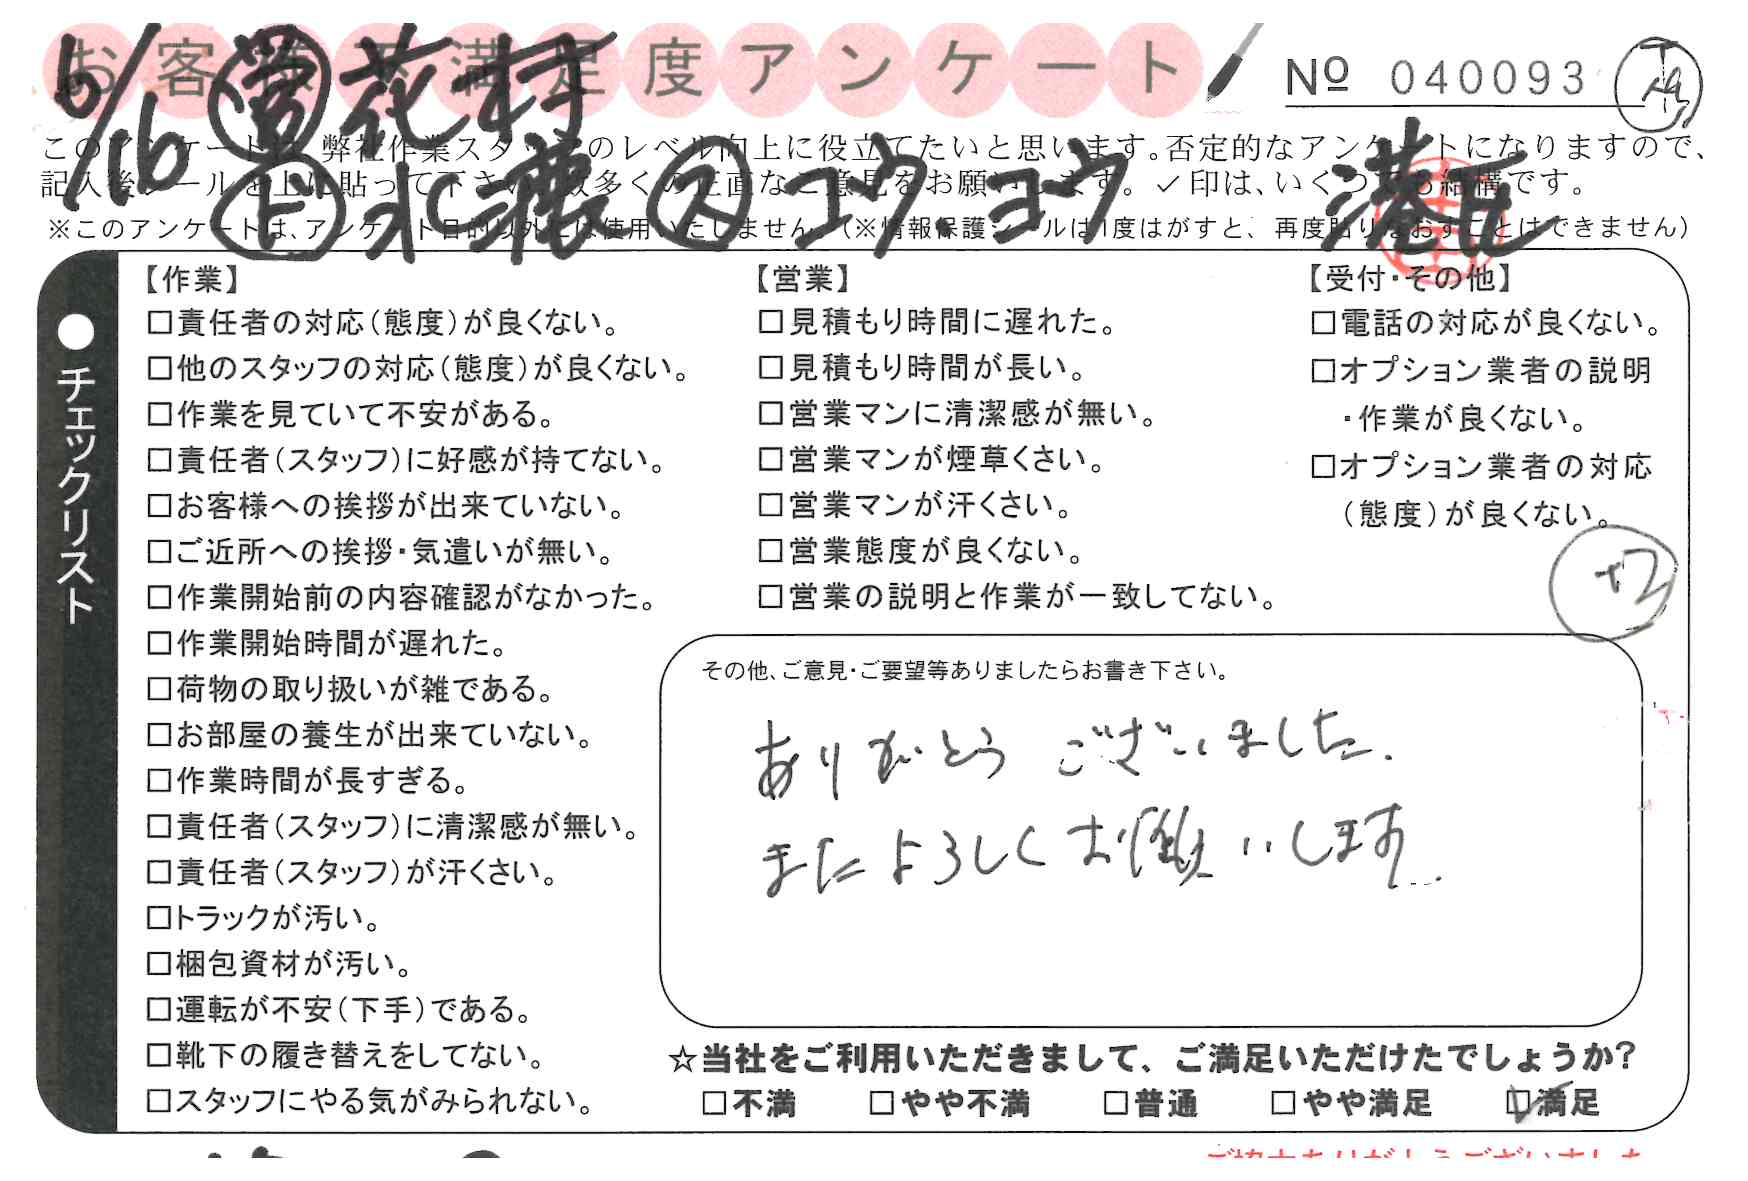 お客様不満足度アンケート
№ 040093
6/16 営 花村
このアンケートは、弊社作業スタッフのレベル向上に役立てたいと思います。否定的なアンケートになりますので、
記入後シールを上に貼って下さい。数多くの正直なご意見をお願いします。✓印は、いくつでも結構です。
コウヨウ 港区
※このアンケートは、アンケート目的以外には使用いたしません。(※情報保護シールは1度はがすと、再度貼りなおすことはできません)
●チェックリスト
【作業】
□責任者の対応(態度)が良くない。
□他のスタッフの対応(態度)が良くない。
□作業を見ていて不安がある。
□責任者(スタッフ)に好感が持てない。
□お客様への挨拶が出来ていない。
□ご近所への挨拶・気遣いが無い。
□作業開始前の内容確認がなかった。
□作業開始時間が遅れた。
□荷物の取り扱いが雑である。
□お部屋の養生が出来ていない。
□作業時間が長すぎる。
□責任者(スタッフ)に清潔感が無い。
□責任者(スタッフ)が汗くさい。
□トラックが汚い。
□梱包資材が汚い。
□運転が不安(下手)である。
□靴下の履き替えをしてない。
□スタッフにやる気がみられない。
【営業】
□見積もり時間に遅れた。
□見積もり時間が長い。
□営業マンに清潔感が無い。
□営業マンが煙草くさい。
□営業マンが汗くさい。
□営業態度が良くない。
□営業の説明と作業が一致してない。
【受付・その他】
□電話の対応が良くない。
□オプション業者の説明
・作業が良くない。
□オプション業者の対応
(態度)が良くない。
+2
その他、ご意見・ご要望等ありましたらお書き下さい。
ありがとうございました.
またよろしくお願いします.
☆当社をご利用いただきまして、ご満足いただけたでしょうか?
□不満 □やや不満 □普通 □やや満足 ☑満足
ご協力ありがとうございました